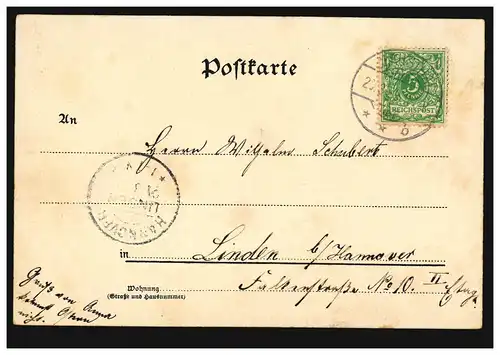 Postkarte
5
REICHSPOST
An
Herrn Wilhelm Schubert
HANNOVER
LINDEN
in Linden b/Hannover
Wohnung
(Straße und Hausnummer)
Falkenstraße No 10. II Etag.
Gruß von Anna